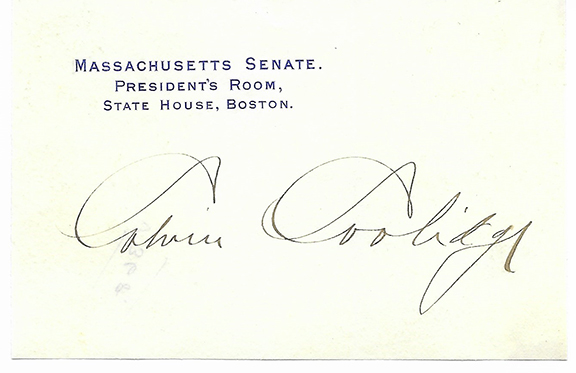 MASSACHUSETTS SENATE.
PRESIDENT'S ROOM,
STATE HOUSE, BOSTON.
Calvin Coolidge